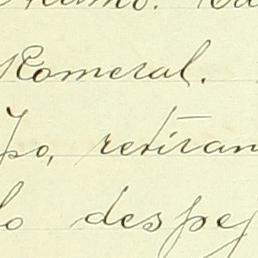 Romeral.
po, retiran
lo despej